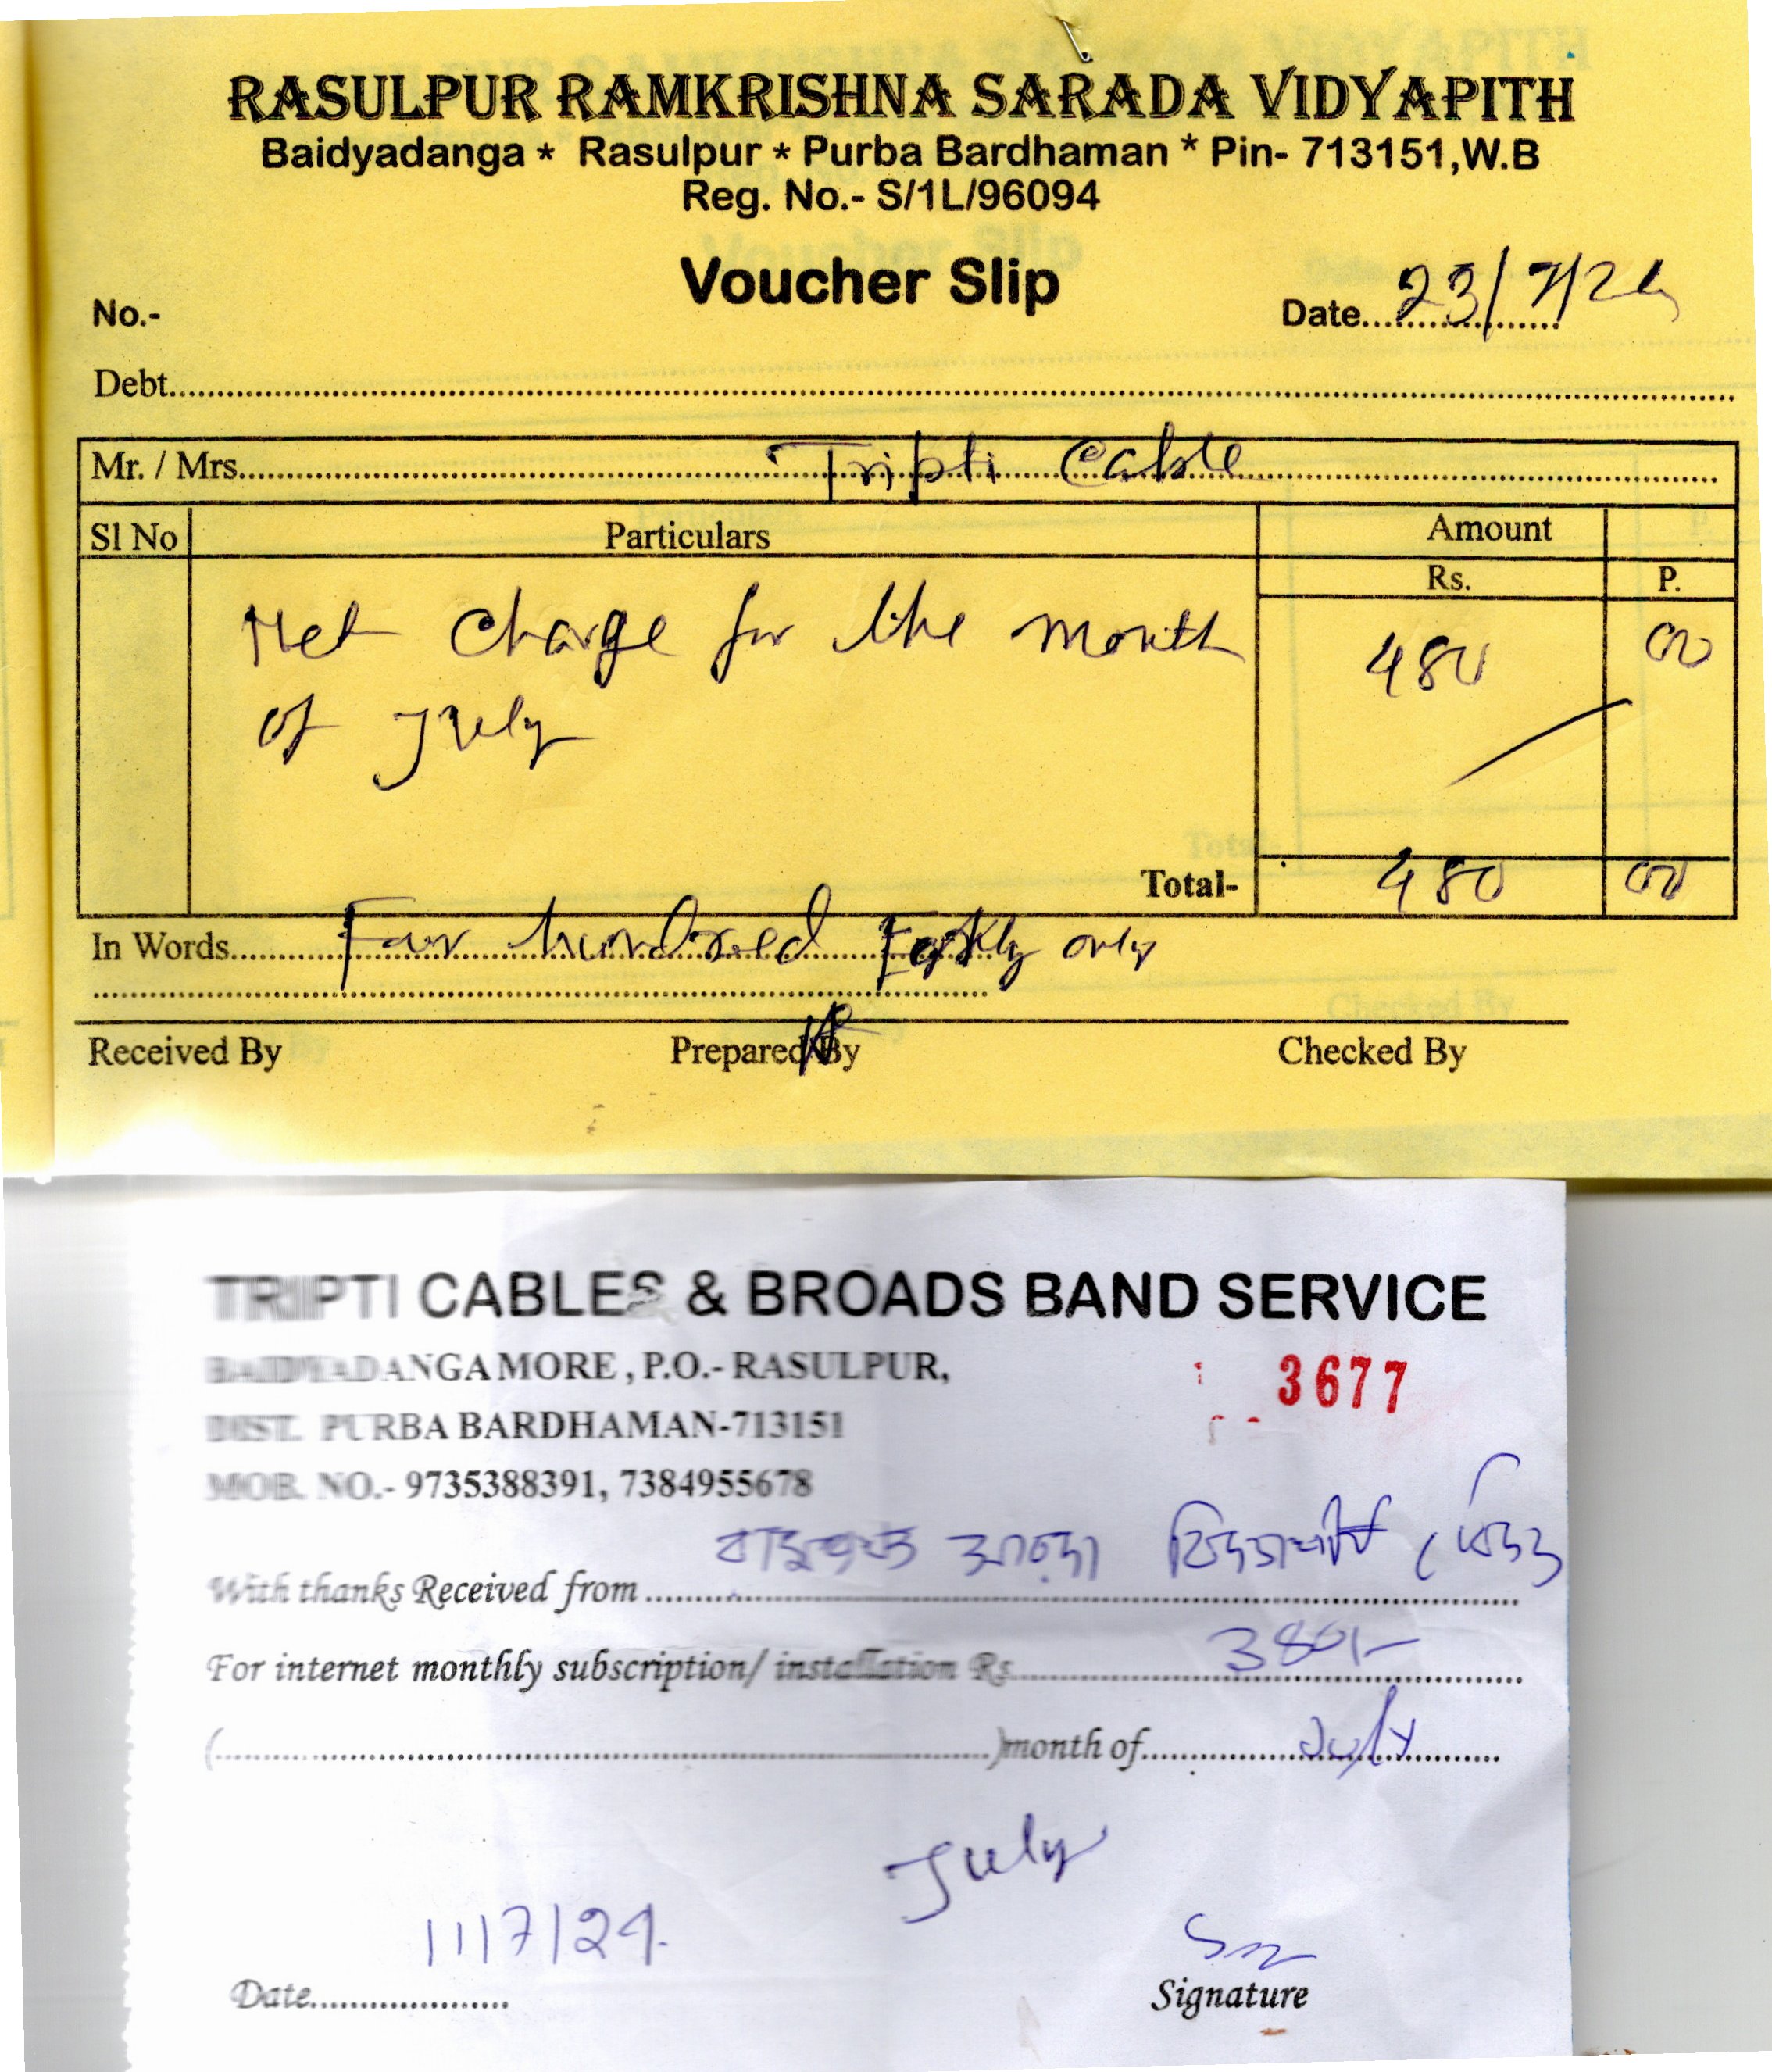 RASULPUR RAMKRISHNA SARADA VIDYAPITH
Baidyadanga * Rasulpur * Purba Bardhaman * Pin- 713151,W.B
Reg. No.- S/1L/96094
Voucher Slip
No.- Date..................23/7/24
Debt..........
Mr. / Mrs..........Tripti Cable
Sl No Particulars Amount
Rs. P.
Net charge for the month 480 00
of July
Total- 480 00
In Words..........Four hundred only
Received By Prepared By Checked By
TRIPTI CABLES & BROADS BAND SERVICE
BAIDYADANGA MORE , P.O.- RASULPUR, 3677
DIST. PURBA BARDHAMAN-713151
MOB. NO.- 9735388391, 7384955678
With thanks Received from..........
For internet monthly subscription/ installation Rs..........
(..........)month of..........July
July
11/7/24.
Date....................
Signature